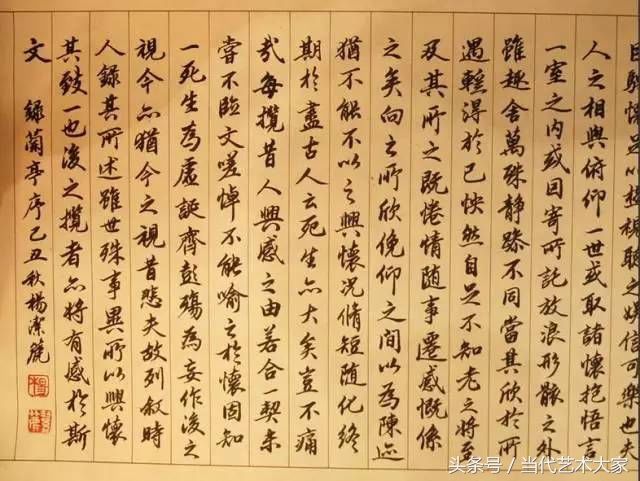 騁懷足以極視聽之娛信可樂也夫
人之相與俯仰一世或取諸懷抱悟言
一室之内或因寄所託放浪形骸之外
雖趣舍萬殊静躁不同當其欣於所
遇輕得於己怏然自足不知老之將至
及其所之既惓情随事遷感慨係
之矣向之所欣俛仰之間以為陳迹
猶不能不以之興懷況脩短随化終
期於盡古人云死生亦大矣豈不痛
哉每攬昔人興感之由若合一契未
嘗不臨文嗟悼不能喻之於懷固知
一死生為虚誕齊彭殤為妄作後之
視今亦猶今之視昔悲夫故列敘時
人録其所述雖世殊事異所以興懷
其致一也後之攬者亦將有感於斯
文 録蘭亭序己丑秋楊潔麗
头条号 / 当代艺术大家